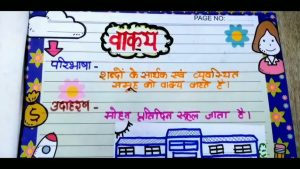 PAGE NO:
वाक्य
परिभाषा -
शब्दों के सार्थक एवं व्यवस्थित
समूह को वाक्य कहते है।
उदाहरण -
मोहन प्रतिदिन स्कूल जाता है।